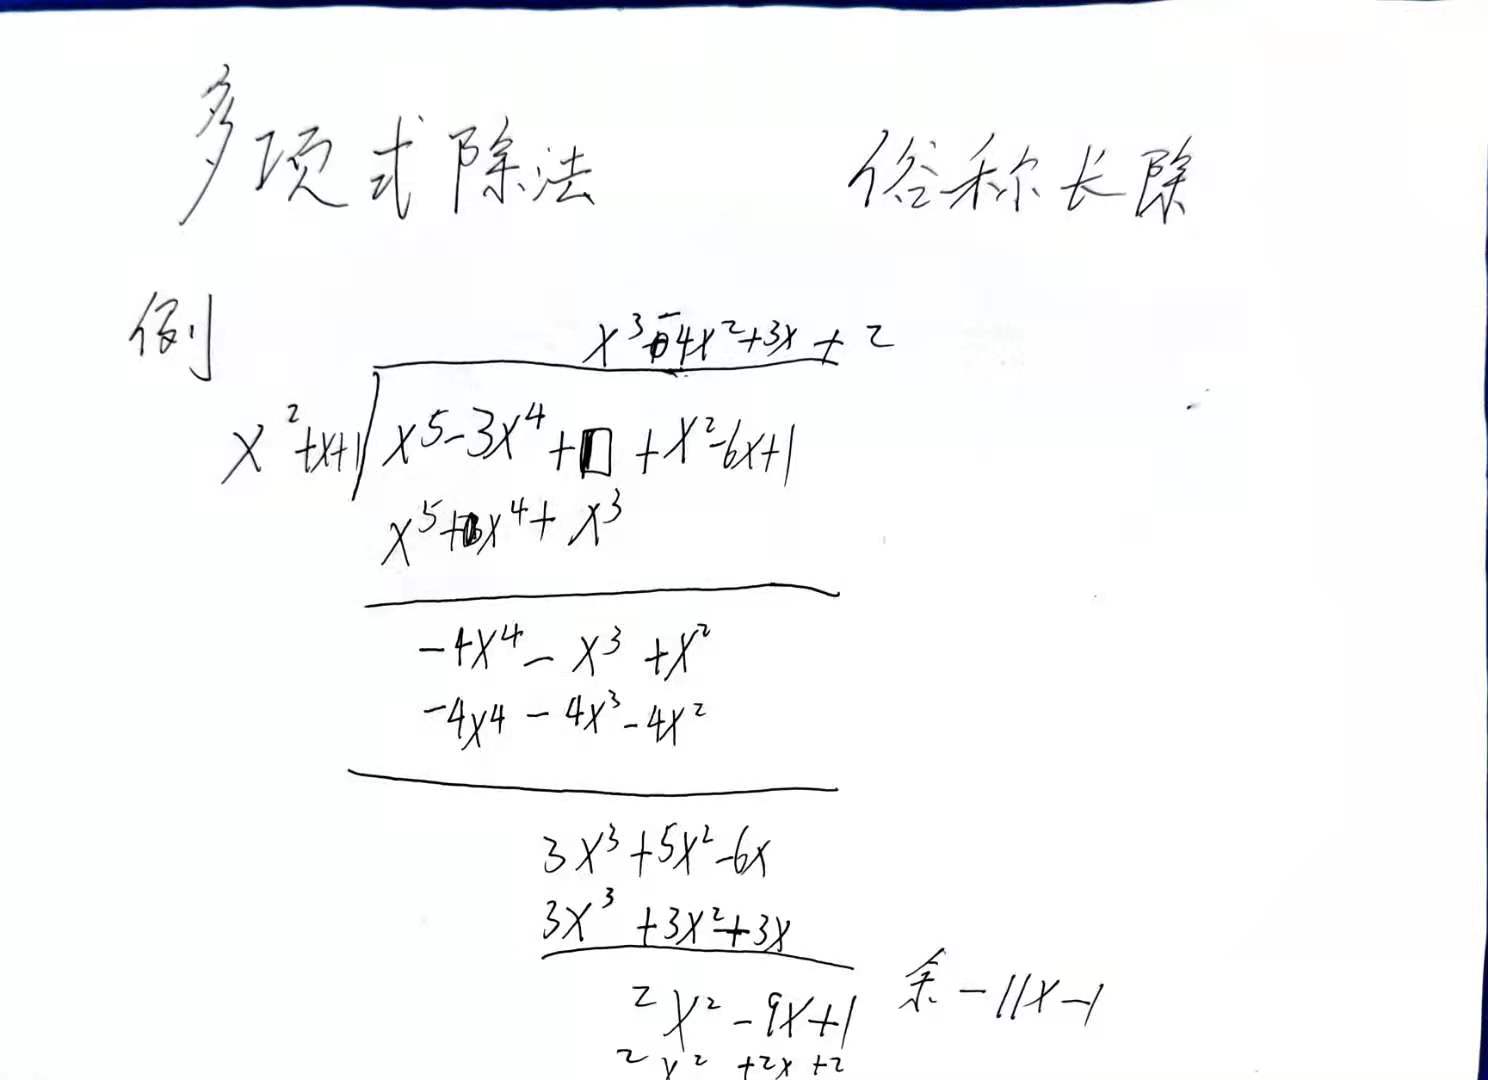 多项式除法 俗称长除
例
x³-4x²+3x+2
x²+x+1 x⁵-3x⁴+□+x²-6x+1
x⁵+x⁴+x³
-4x⁴-x³+x²
-4x⁴-4x³-4x²
3x³+5x²-6x
3x³+3x²+3x
2x²-9x+1 余-11x-1
2x²+2x+2